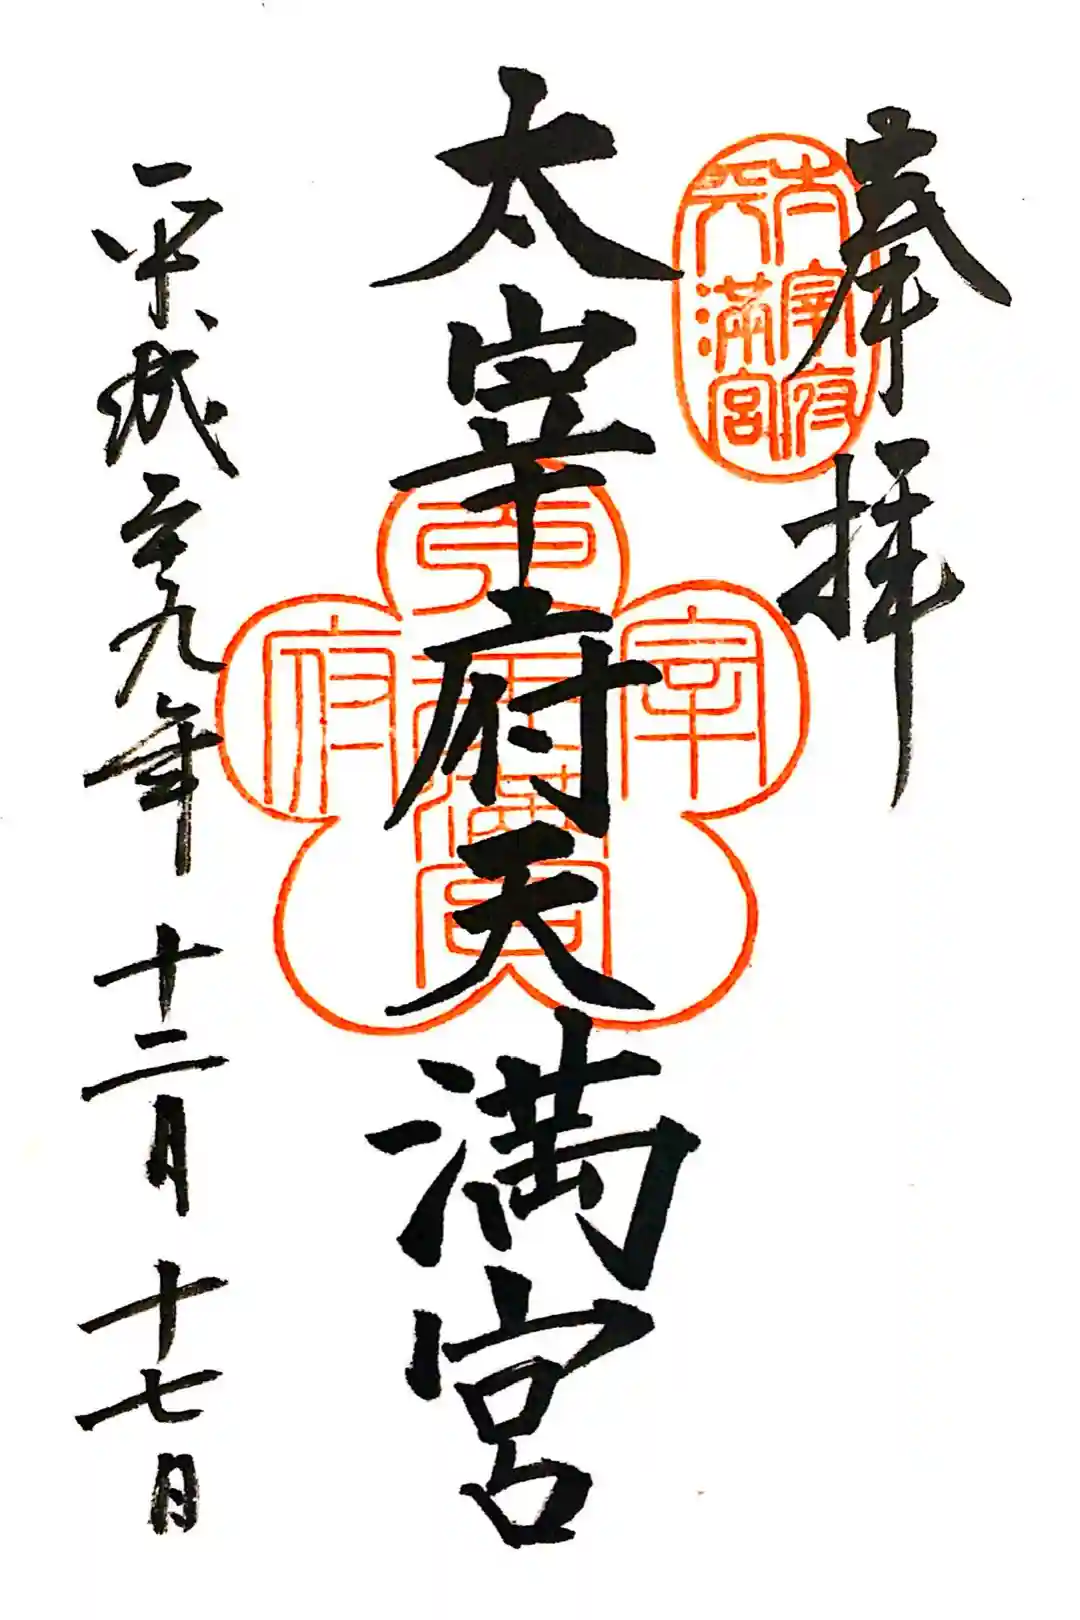 奉拝
太宰府天満宮
太宰府
天満宮
平成二十九年 十二月 十七日